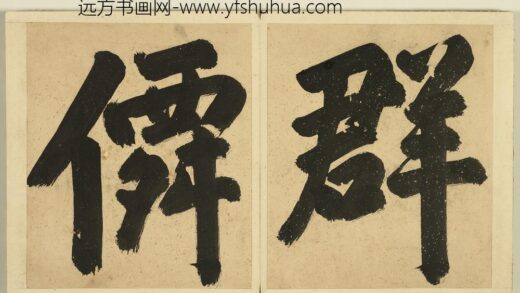 远方书画网-www.yfshuhua.com
群僊